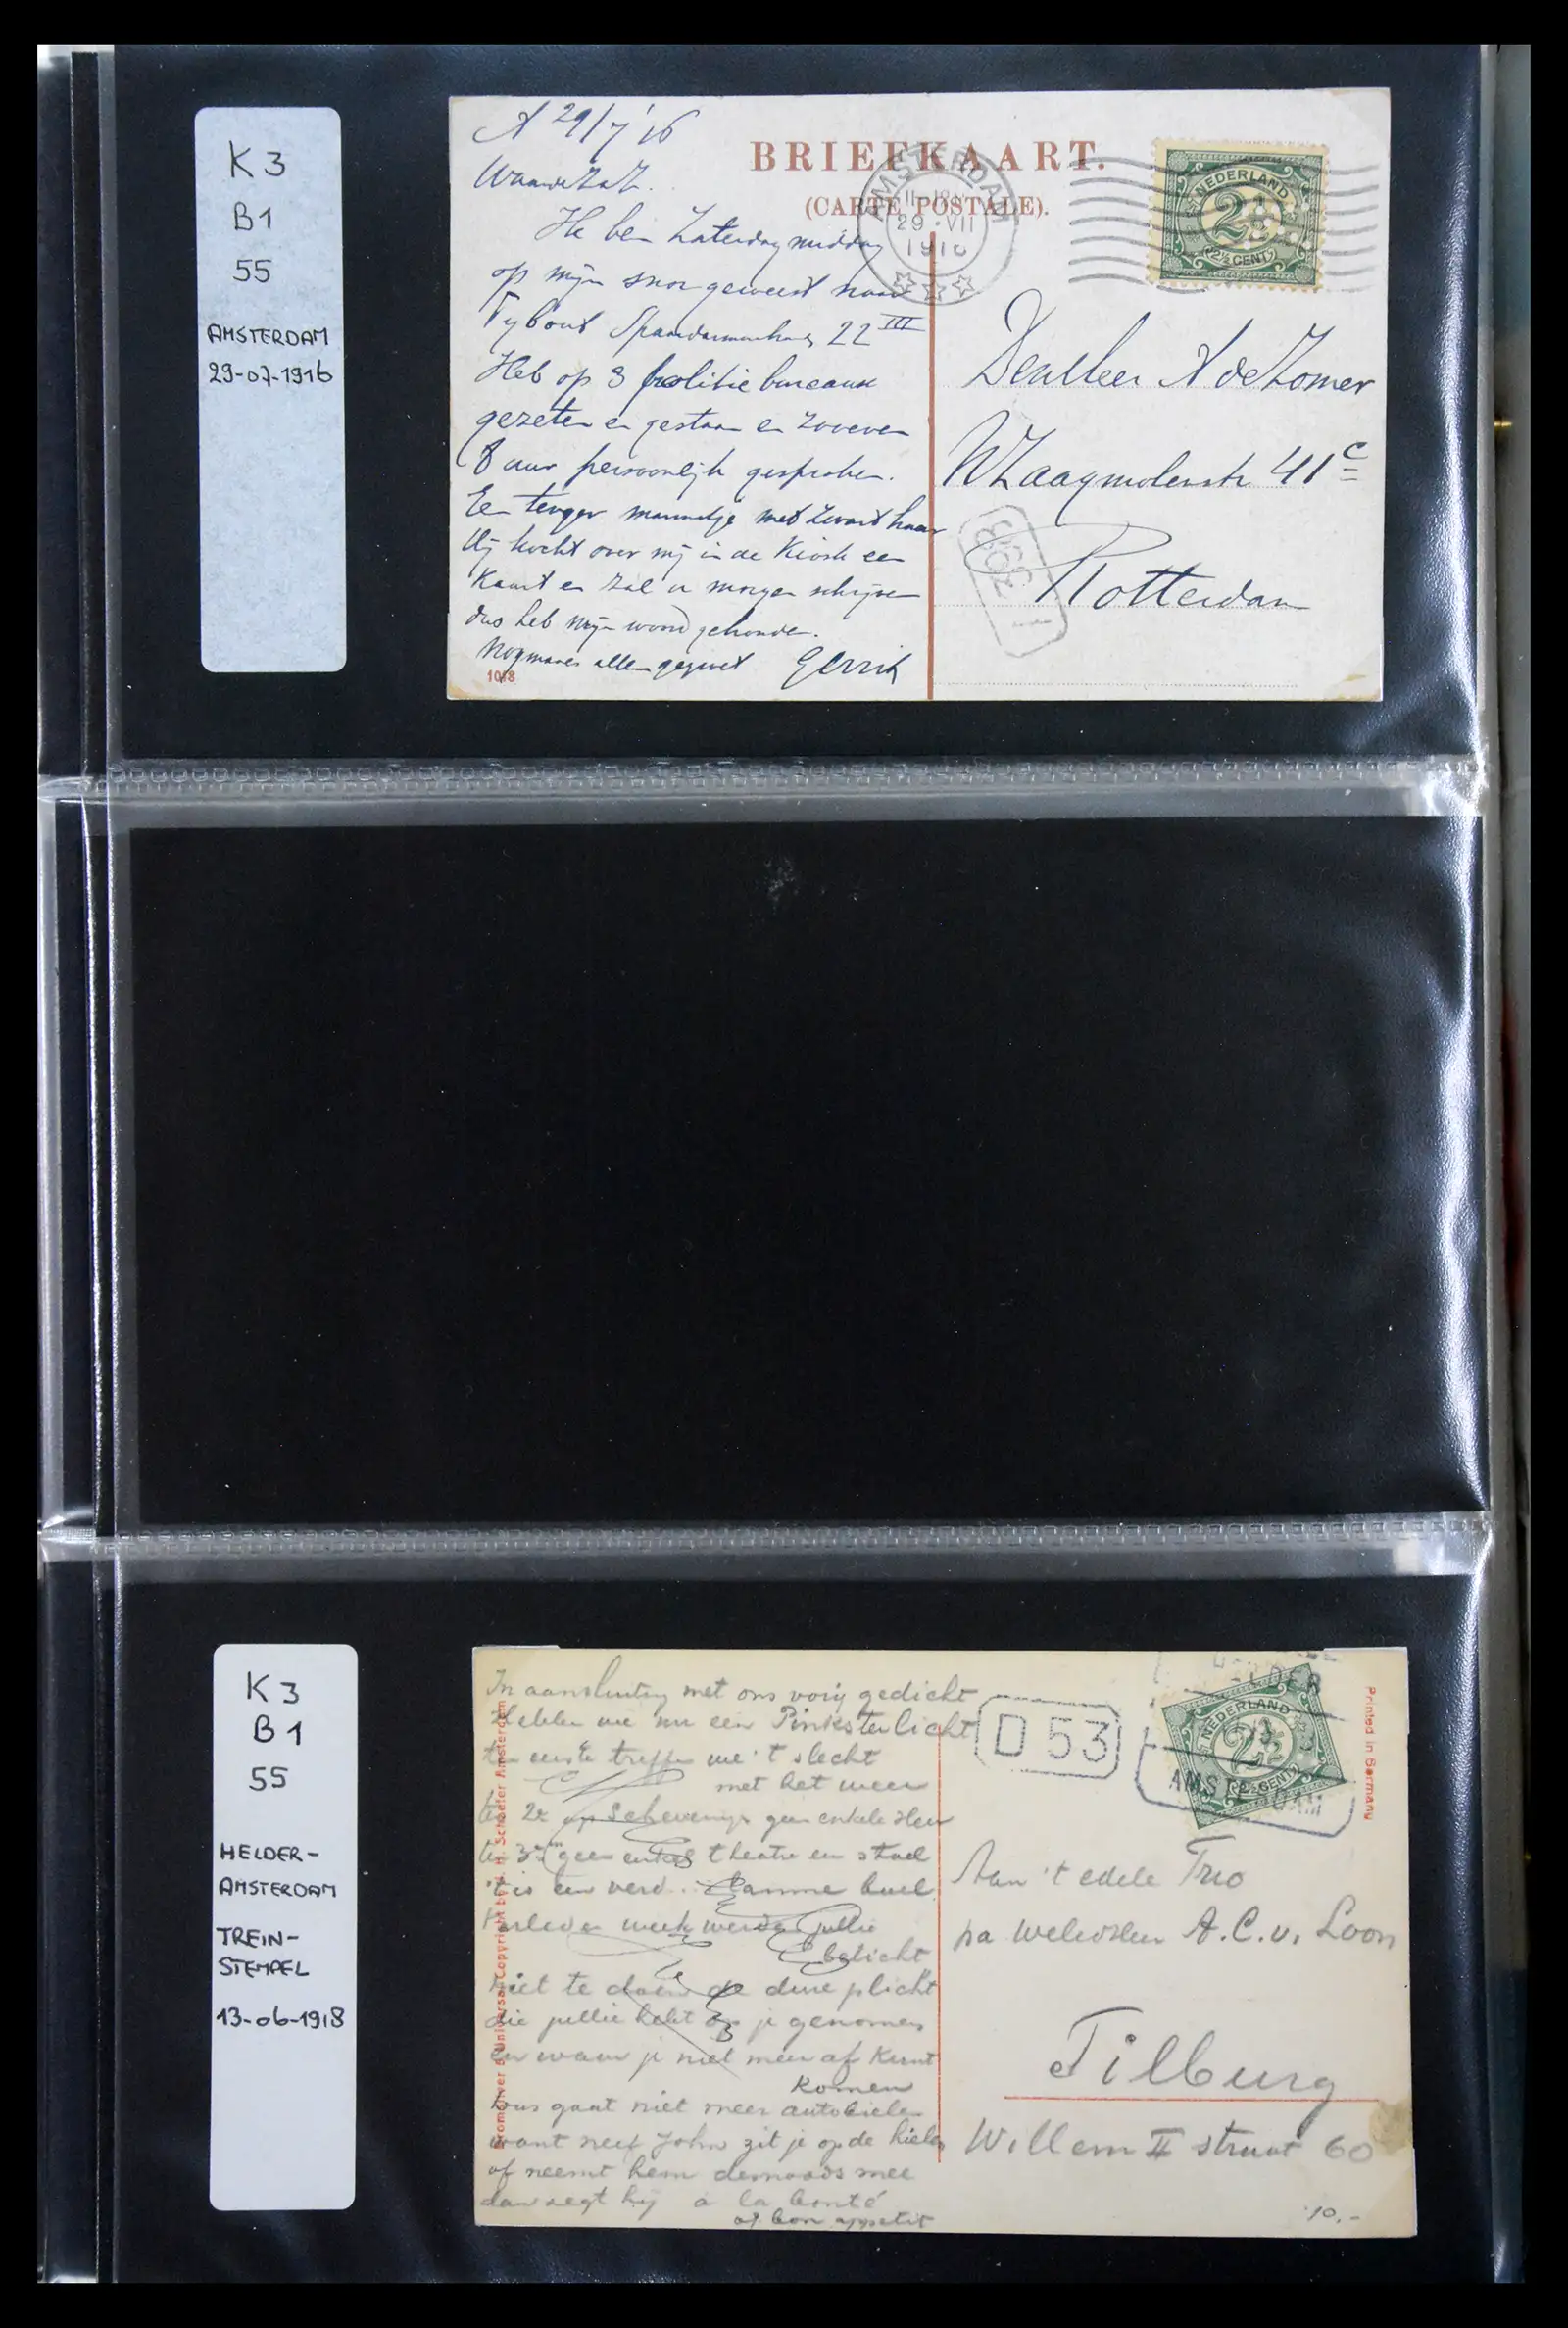 K3
B1
55
AMSTERDAM
29-07-1916
A 29/7 '16
BRIEFKAART.
(CARTE POSTALE).
AMSTERDAM
29 VII
1916
NEDERLAND
2½
2½ CENT
Ik ben Zaterdag middag
op mijn snor geweest naar
Tybout 22 III
Heb op 3 politie bureaux
gezeten en gestaan en zoeven
persoonlijk gesproken.
Een tenger mannetje met zwart haar
Hij kocht over mij in de Kiosk een
Kaart en zal u morgen schrijven
dus heb mijn woord gehouden.
Nogmaals allen gegroet Gerrit
1018
Den Heer A de Zomer
W Zaagmolenstr 41 c
Rotterdam
K3
B1
55
HELDER-
AMSTERDAM
TREIN-
STEMPEL
13-06-1918
In aansluiting met ons vorig gedicht
Hebben we nu een Pinksterlicht
ten eerste treffen we 't slecht
met het weer
2e op Schevening geen enkele Heer
3e geen enkel theatre en stael
't is een verd...
Verleden week werden jullie
belicht
niet te doen de dure plicht
die jullie hebt op je genomen
en waar je niet meer af kunt
komen
Dus gaat niet meer autobielen
want neef John zit je op de hielen
of neemt hem demoods mee
dan zegt hij a la bonté
of bon appetit
D 53
HELDER
AMSTERDAM
NEDERLAND
2½
2½ CENT
Printed in Germany
Aan 't edele Trio
pa Weledelen A.C.v. Loon
Tilburg
Willem II straat 60
10,-